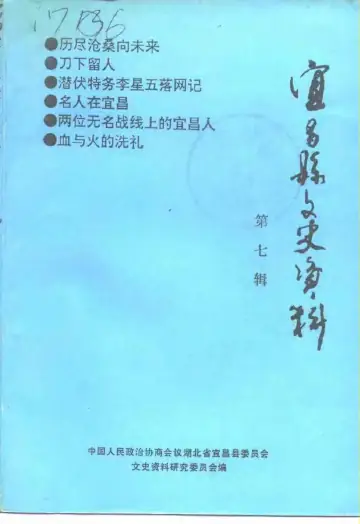 ●历尽沧桑向未来
●刀下留人
●潜伏特务李星五落网记
●名人在宜昌
●两位无名战线上的宜昌人
●血与火的洗礼
宜昌縣文史资料
第七辑
中国人民政治协商会议湖北省宜昌县委员会
文史资料研究委员会编